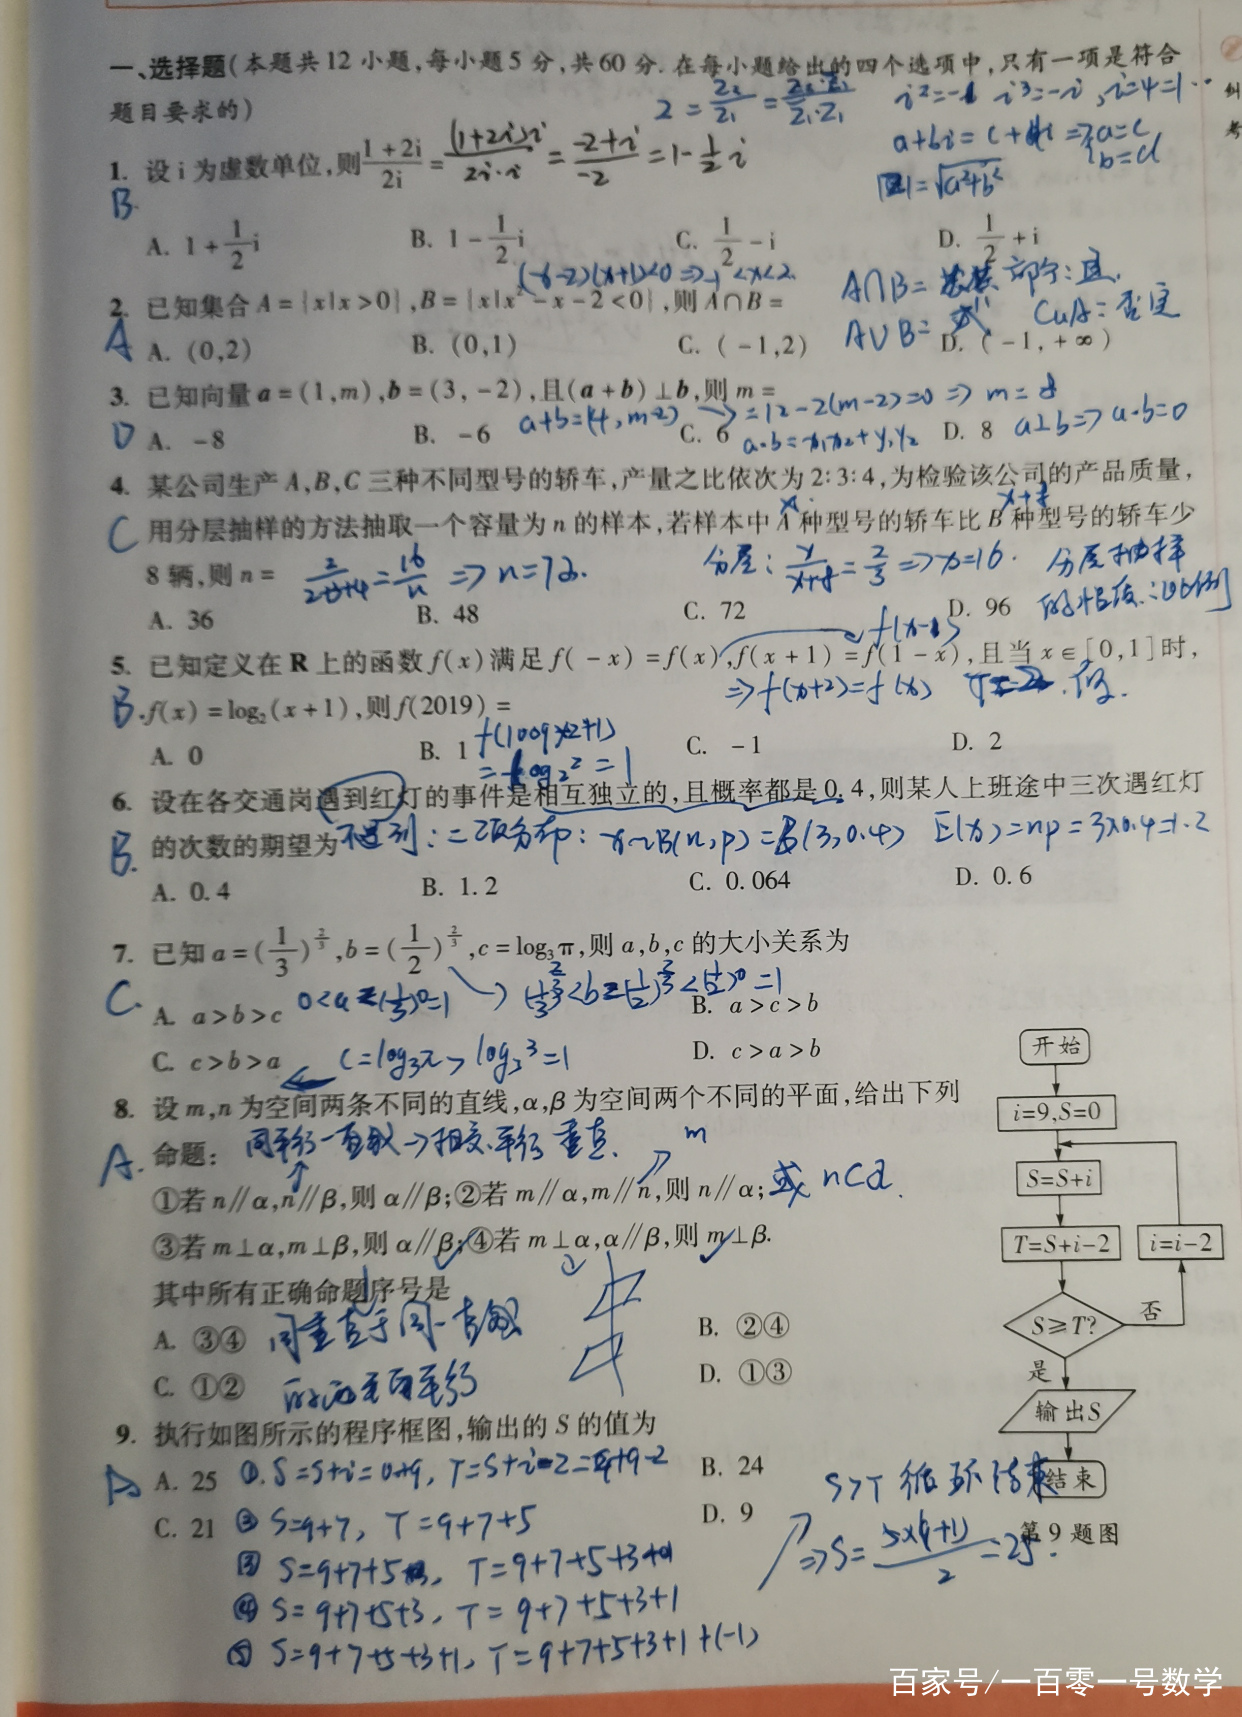 一、选择题(本题共12小题,每小题5分,共60分.在每小题给出的四个选项中,只有一项是符合
题目要求的)
Z = Z₂/Z₁ = Z₂·Z₁/Z₁·Z₁
i²=-1 i³=-i, i^4=1
a+bi=c+di⇒{a=c b=d
|Z|=√(a²+b²)
1. 设i为虚数单位,则(1+2i)/(2i) = (1+2i)·i/(2i·i) = (-2+i)/(-2) = 1-½i
B.
A. 1+1/2 i B. 1-1/2 i C. 1/2-i D. 1/2+i
(x-2)(x+1)<0⇒-1<x<2
2. 已知集合A={x|x>0},B={x|x²-x-2<0},则A∩B=
A∩B= 部分:且.
A∪B= CuA:否定
A
A. (0,2) B. (0,1) C. (-1,2) D. (-1,+∞)
3. 已知向量a=(1,m),b=(3,-2),且(a+b)⊥b,则m=
a+b=(4,m-2) =12-2(m-2)=0⇒m=8
D
A. -8 B. -6 C. 6 D. 8
a·b=x₁x₂+y₁y₂ a⊥b⇒a·b=0
4. 某公司生产A,B,C三种不同型号的轿车,产量之比依次为2:3:4,为检验该公司的产品质量,
x x+8
C 用分层抽样的方法抽取一个容量为n的样本,若样本中A种型号的轿车比B种型号的轿车少
8辆,则n= 2/(2+3+4)=16/n ⇒n=72. 分层: x/(x+8)=2/3⇒x=16. 分层抽样
A. 36 B. 48 C. 72 D. 96
f(x-1)
5. 已知定义在R上的函数f(x)满足f(-x)=f(x),f(x+1)=f(1-x),且当x∈[0,1]时,
⇒f(x+2)=f(x) T=2.
B. f(x)=log₂(x+1),则f(2019)=
f(1009×2+1)
A. 0 B. 1 C. -1 D. 2
=log₂²=1
6. 设在各交通岗遇到红灯的事件是相互独立的,且概率都是0.4,则某人上班途中三次遇红灯
B. 的次数的期望为 二项分布: X~B(n,p)=B(3,0.4) E(x)=np=3×0.4=1.2
A. 0.4 B. 1.2 C. 0.064 D. 0.6
7. 已知a=(1/3)^(2/3),b=(1/2)^(2/3),c=log₃π,则a,b,c的大小关系为
C.
0<a=(1/3)⁰=1 (1/3)^(2/3)<b=(1/2)^(2/3)<(1/2)⁰=1
A. a>b>c B. a>c>b
C. c>b>a D. c>a>b
c=log₃π>log₃³=1
8. 设m,n为空间两条不同的直线,α,β为空间两个不同的平面,给出下列
A. 命题: 同平行一直线→相交、平行 垂直. m
①若n∥α,n∥β,则α∥β;②若m∥α,m∥n,则n∥α; 或n⊂α.
③若m⊥α,m⊥β,则α∥β;④若m⊥α,α∥β,则m⊥β.
其中所有正确命题序号是
A. ③④ B. ②④
同垂直于同一直线
C. ①② D. ①③
的两平面平行
9. 执行如图所示的程序框图,输出的S的值为
A
A. 25 B. 24
①. S=S+i=0+9, T=S+i-2=9+9-2
C. 21 D. 9
② S=9+7, T=9+7+5
③ S=9+7+5, T=9+7+5+3
④ S=9+7+5+3, T=9+7+5+3+1
⑤ S=9+7+5+3+1, T=9+7+5+3+1+(-1)
S>T 循环结束
⇒S=5×(9+1)/2=25.
开始
i=9,S=0
S=S+i
T=S+i-2
i=i-2
S≥T?
否
是
输出S
结束
第9题图
纠
考
百家号/一百零一号数学